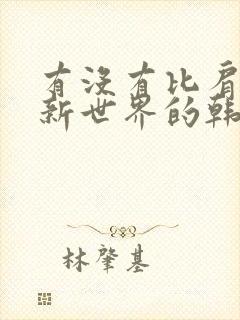 有没有比肩
新世界的韩
林肇基